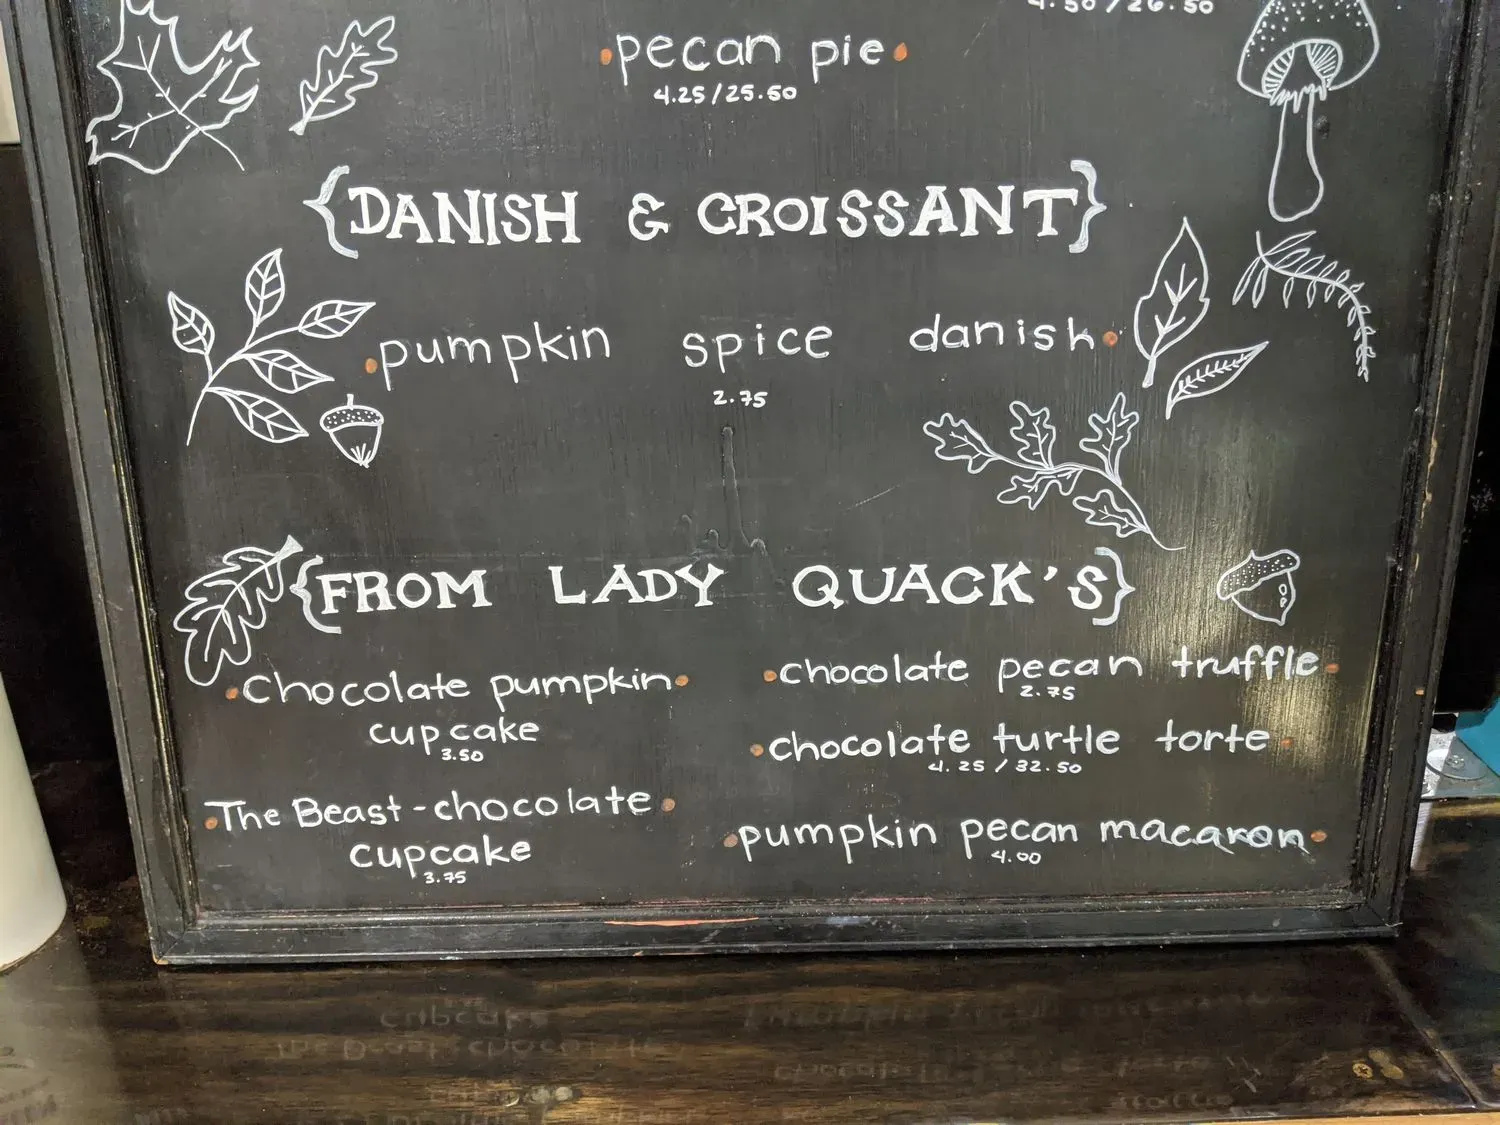 4.50/26.50
•pecan pie•
4.25/25.50
{DANISH & CROISSANT}
•pumpkin spice danish•
2.75
{FROM LADY QUACK'S}
•Chocolate pumpkin•
cupcake
3.50
•The Beast-chocolate•
cupcake
3.75
•chocolate pecan truffle•
2.75
•chocolate turtle torte•
4.25/32.50
•pumpkin pecan macaron•
4.00